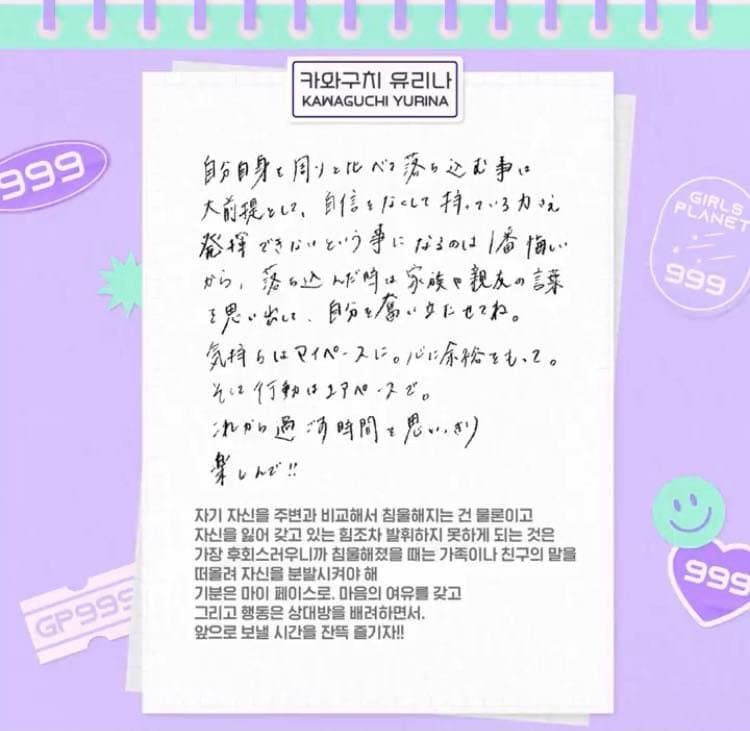 카와구치 유리나
KAWAGUCHI YURINA
999
GIRLS
PLANET
999
自分自身を周りと比べて落ち込む事は
大前提として、自信をなくして持っている力さえ
発揮できないという事になるのは1番悔しい
から、落ち込んだ時は家族や親友の言葉
を思い出して、自分を奮い立たせてね。
気持ちはマイペースに。心に余裕をもって。
そして行動はユアペースで。
これから過ごす時間を思いっきり
楽しんで!!
자기 자신을 주변과 비교해서 침울해지는 건 물론이고
자신을 잃어 갖고 있는 힘조차 발휘하지 못하게 되는 것은
가장 후회스러우니까 침울해졌을 때는 가족이나 친구의 말을
떠올려 자신을 분발시켜야 해
기분은 마이 페이스로. 마음의 여유를 갖고
그리고 행동은 상대방을 배려하면서.
앞으로 보낼 시간을 잔뜩 즐기자!!
999
GP999